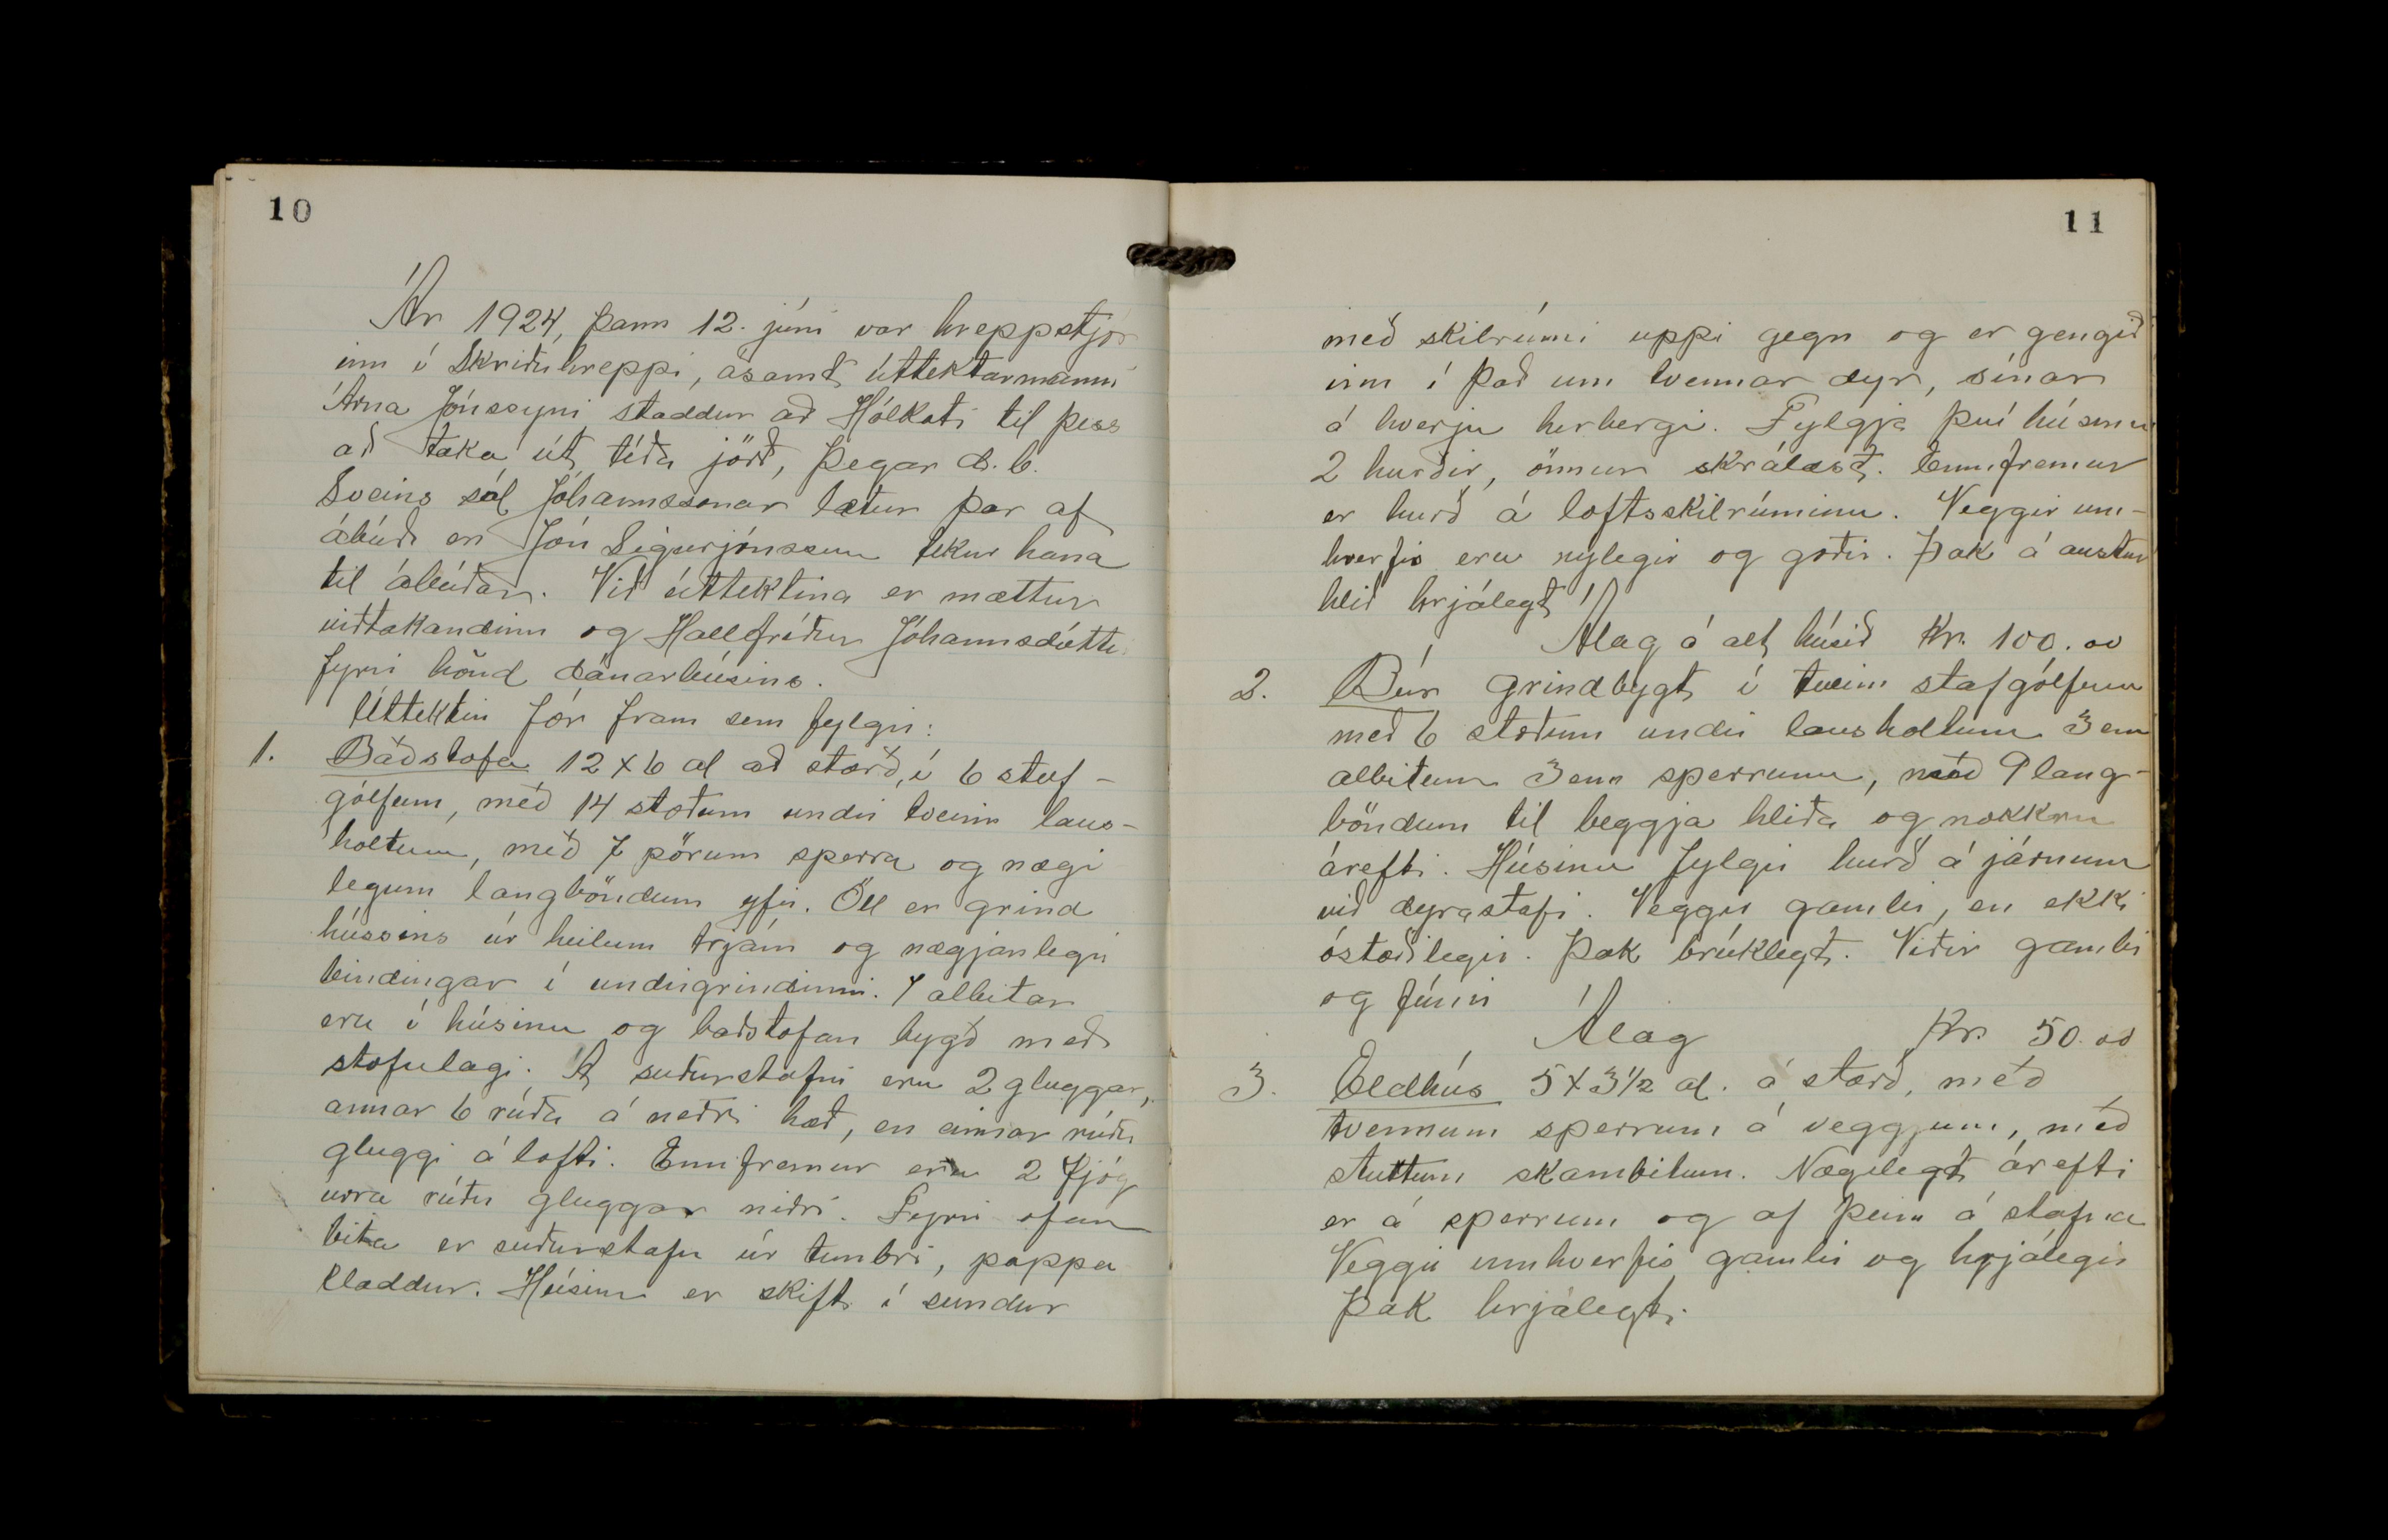 10
Ár 1924, þann 12. júní var hreppstjór
inn í Skriðuhreppi, ásamt úttektarmanni
Árna Jónssyni staddur að Hólkoti til þess
að taka út téða jörð, þegar d.b.
Sveins sál Jóhannssonar lætur þar af
ábúð en Jón Sigurjónsson tekur hana
til ábúðar. Við úttektina er mættur
viðtakandinn og Hallfríður Jóhannsdóttir
fyrir hönd dánarbúsins.
Úttektin fór fram sem fylgir:
1. Baðstofa 12 x 6 al að stærð, í 6 staf-
gólfum, með 14 stoðum undir tveim laus-
holtum, með 7 pörum sperra og nægi
legum langböndum yfir. Öll er grind
hússins úr heilum trjám og nægjanlegir
bindingar í undirgrindinni. 7 albitar
eru í húsinu og baðstofan bygð með
stofulagi. Á suðurstafni eru 2 gluggar,
annar 6 rúðu á neðri hæð, en einnar rúðu
gluggi á lofti. Ennfremur eru 2 fjög
urra rúðu gluggar niðri. Fyrir ofan
bita er suðurstafn úr timbri, pappa
klæddur. Húsinu er skift í sundur
11
með skilrúmi uppi gegn og er gengið
inn í það um tvennar dyr, sínar
á hverju herbergi. Fylgja því húsinu
2 hurðir, önnur skrálæst. Ennfremur
er hurð á loftsskilrúminu. Veggir um-
hverfis eru nýlegir og góðir. Þak á austur
hlið hrjálegt
Álag á alt húsið Kr. 100.00
2. Búr grindbygt í tveim stafgólfum
með 6 stoðum undir lausholtum 3em
albitum 3em sperrum, með 9 lang-
böndum til beggja hliða og nokkru
árefti. Húsinu fylgir hurð á járnum
við dyrastafi. Veggir gamlir, en ekki
óstæðilegir. Þak brúklegt. Viðir gamlir
og fúnir
Álag Kr. 50.00
3. Eldhús 5 x 3 1/2 al. á stærð, með
tvennum sperrum á veggjum, með
stuttum skambitum. Nægilegt árefti
er á sperrum og af þeim á stafna
Veggir umhverfis gamlir og hrjálegir
Þak hrjálegt.